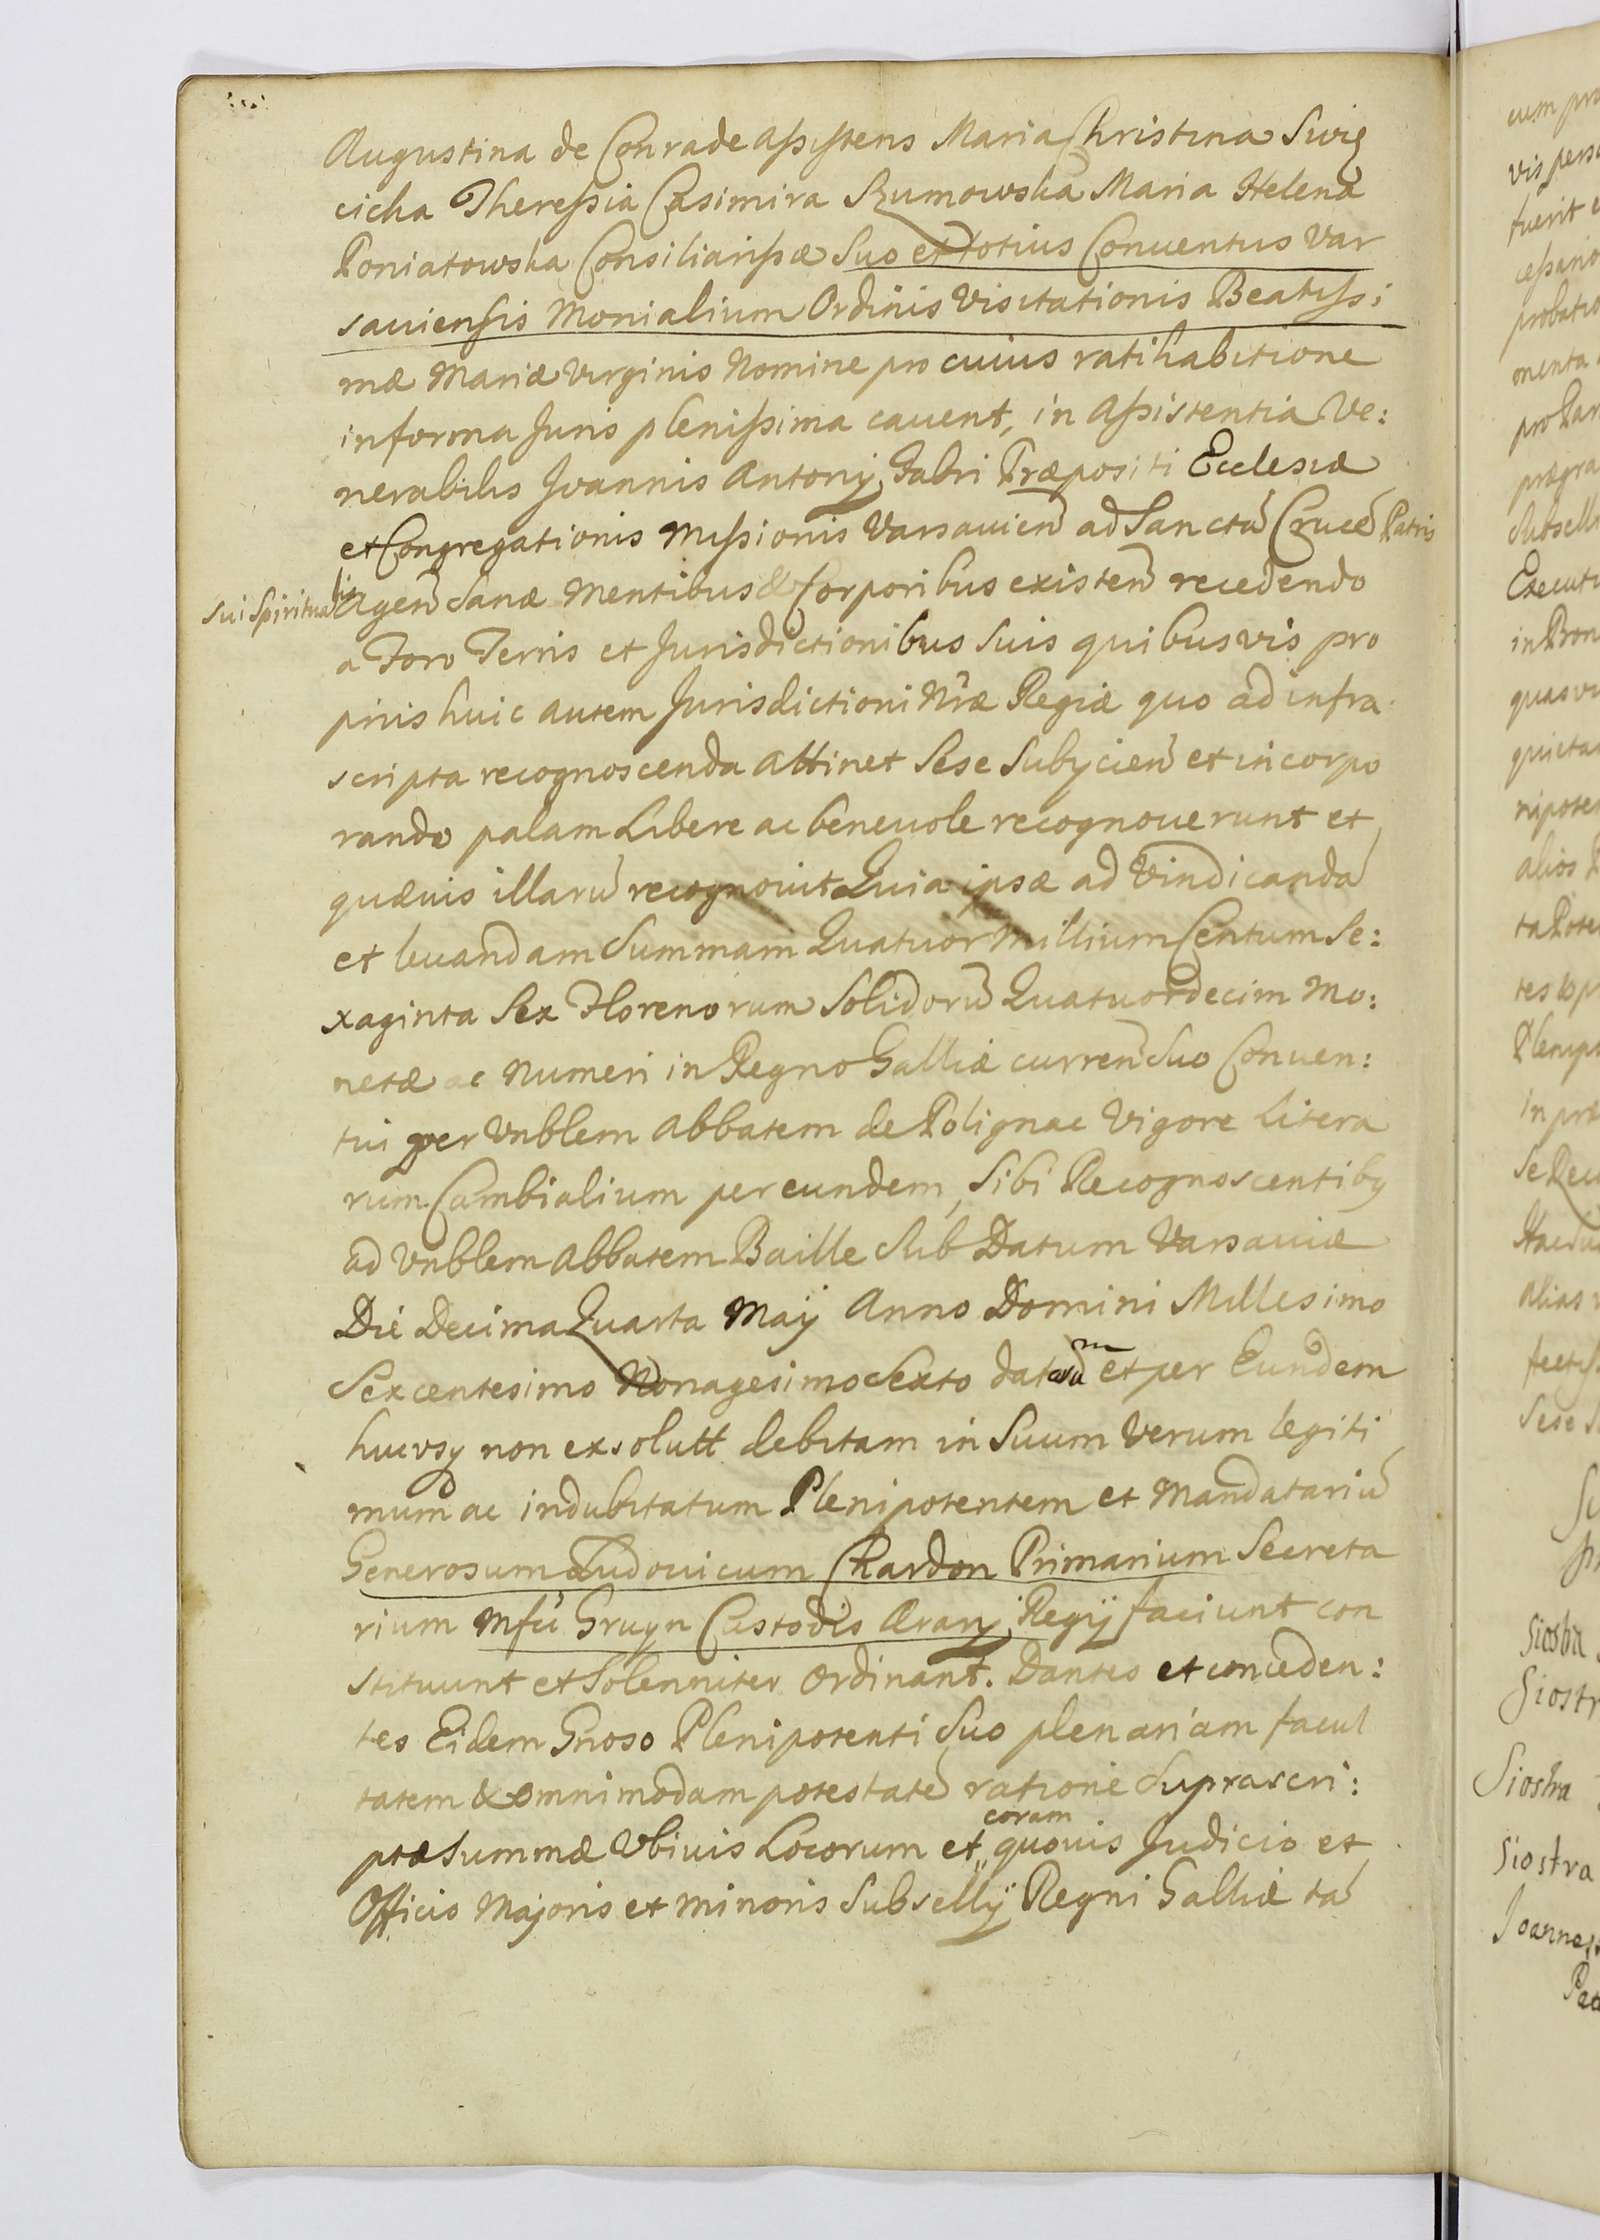 Augustina de Conrade assistens Maria Christina Swię
cicka Theressia Casimira Rumowska Maria Helena
Poniatowska Consiliarissæ Suo et totius Conuentus Var
sauiensis Monialium Ordinis Visitationis Beatissi:
mæ Mariæ Virginis Nomine pro cuius ratihabitione
in forma Juris plenissima cauent, in Assistentia Ve:
nerabilis Joannis Antonij Fabri Præpositi Ecclesiæ
et Congregationis Missionis Varsauien ad Sanctã Crucẽ Patris
sui Spiritualis Agen̄ sanæ Mentibus & Corporibus existen̄ recedendo
a Foro Terris et Jurisdictionibus suis quibusvis pro
prijs huic autem Jurisdictioni Nr̃æ Regiæ quo ad infra
scripta recognoscenda attinet Sese Subÿcien̄ et incorpo
rando palam Libere ac beneuole recognouerunt et
quæuis illarũ recognouit Quia ipsæ ad Vindicandã
et leuandam Summam Quatuor Millium Centum Se:
xaginta Sex Florenorum Solidorũ Quatuordecim Mo:
netæ ac Numeri in Regno Galliæ curren̄ Suo Conuen:
tui per Vnblem Abbatem de Polignac Vigore Litera
rum Cambialium per eundem, Sibi Recognoscentibȝ
ad Vnblem Abbatem Baille Sub Datum Varsauiæ
Die Decima Quarta Maÿ Anno Domini Millesimo
Sexcentesimo Nonagesimo Sexto datam et per Eundem
hucvsqȝ non exsolutt debitam in Suum Verum legiti
mum ac indubitatum Plenipotentem et Mandatariũ
Generosum Ludouicum Chardon Primarium Secreta
rium Mfci Gruyn Custodis Ærarÿ Regÿ faciunt con
stituunt et Solenniter Ordinant. Dantes et conceden:
tes Eidem Gnoso Plenipotenti Suo plenariam facul
tatem & omnimodam potestatẽ ratione Suprascri:
ptæ Summæ Vbiuis Locorum et coram quouis Judicio et
Officio Majoris et Minoris Subsellÿ Regni Galliæ tã